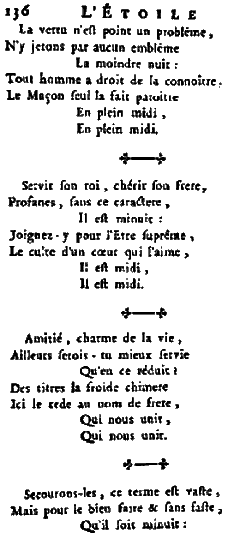 136 L'ÉTOILE
La vertu n'eſt point un problême,
N'y jetons par aucun emblême
La moindre nuit :
Tout homme a droit de la connoître,
Le Maçon ſeul la fait paroître
En plein midi,
En plein midi.
Servir ſon roi, chérir ſon frere,
Profanes, ſans ce caractere,
Il eſt minuit :
Joignez-y pour l'Etre ſuprême,
Le culte d'un cœur qui l'aime,
Il eſt midi,
Il eſt midi.
Amitié, charme de la vie,
Ailleurs ſerois-tu mieux ſervie
Qu'en ce réduit ?
Des titres la froide chimere
Ici le cede au nom de frere,
Qui nous unit,
Qui nous unit.
Secourons-les, ce terme eſt vaſte,
Mais pour le bien faire & ſans faſte,
Qu'il ſoit minuit :